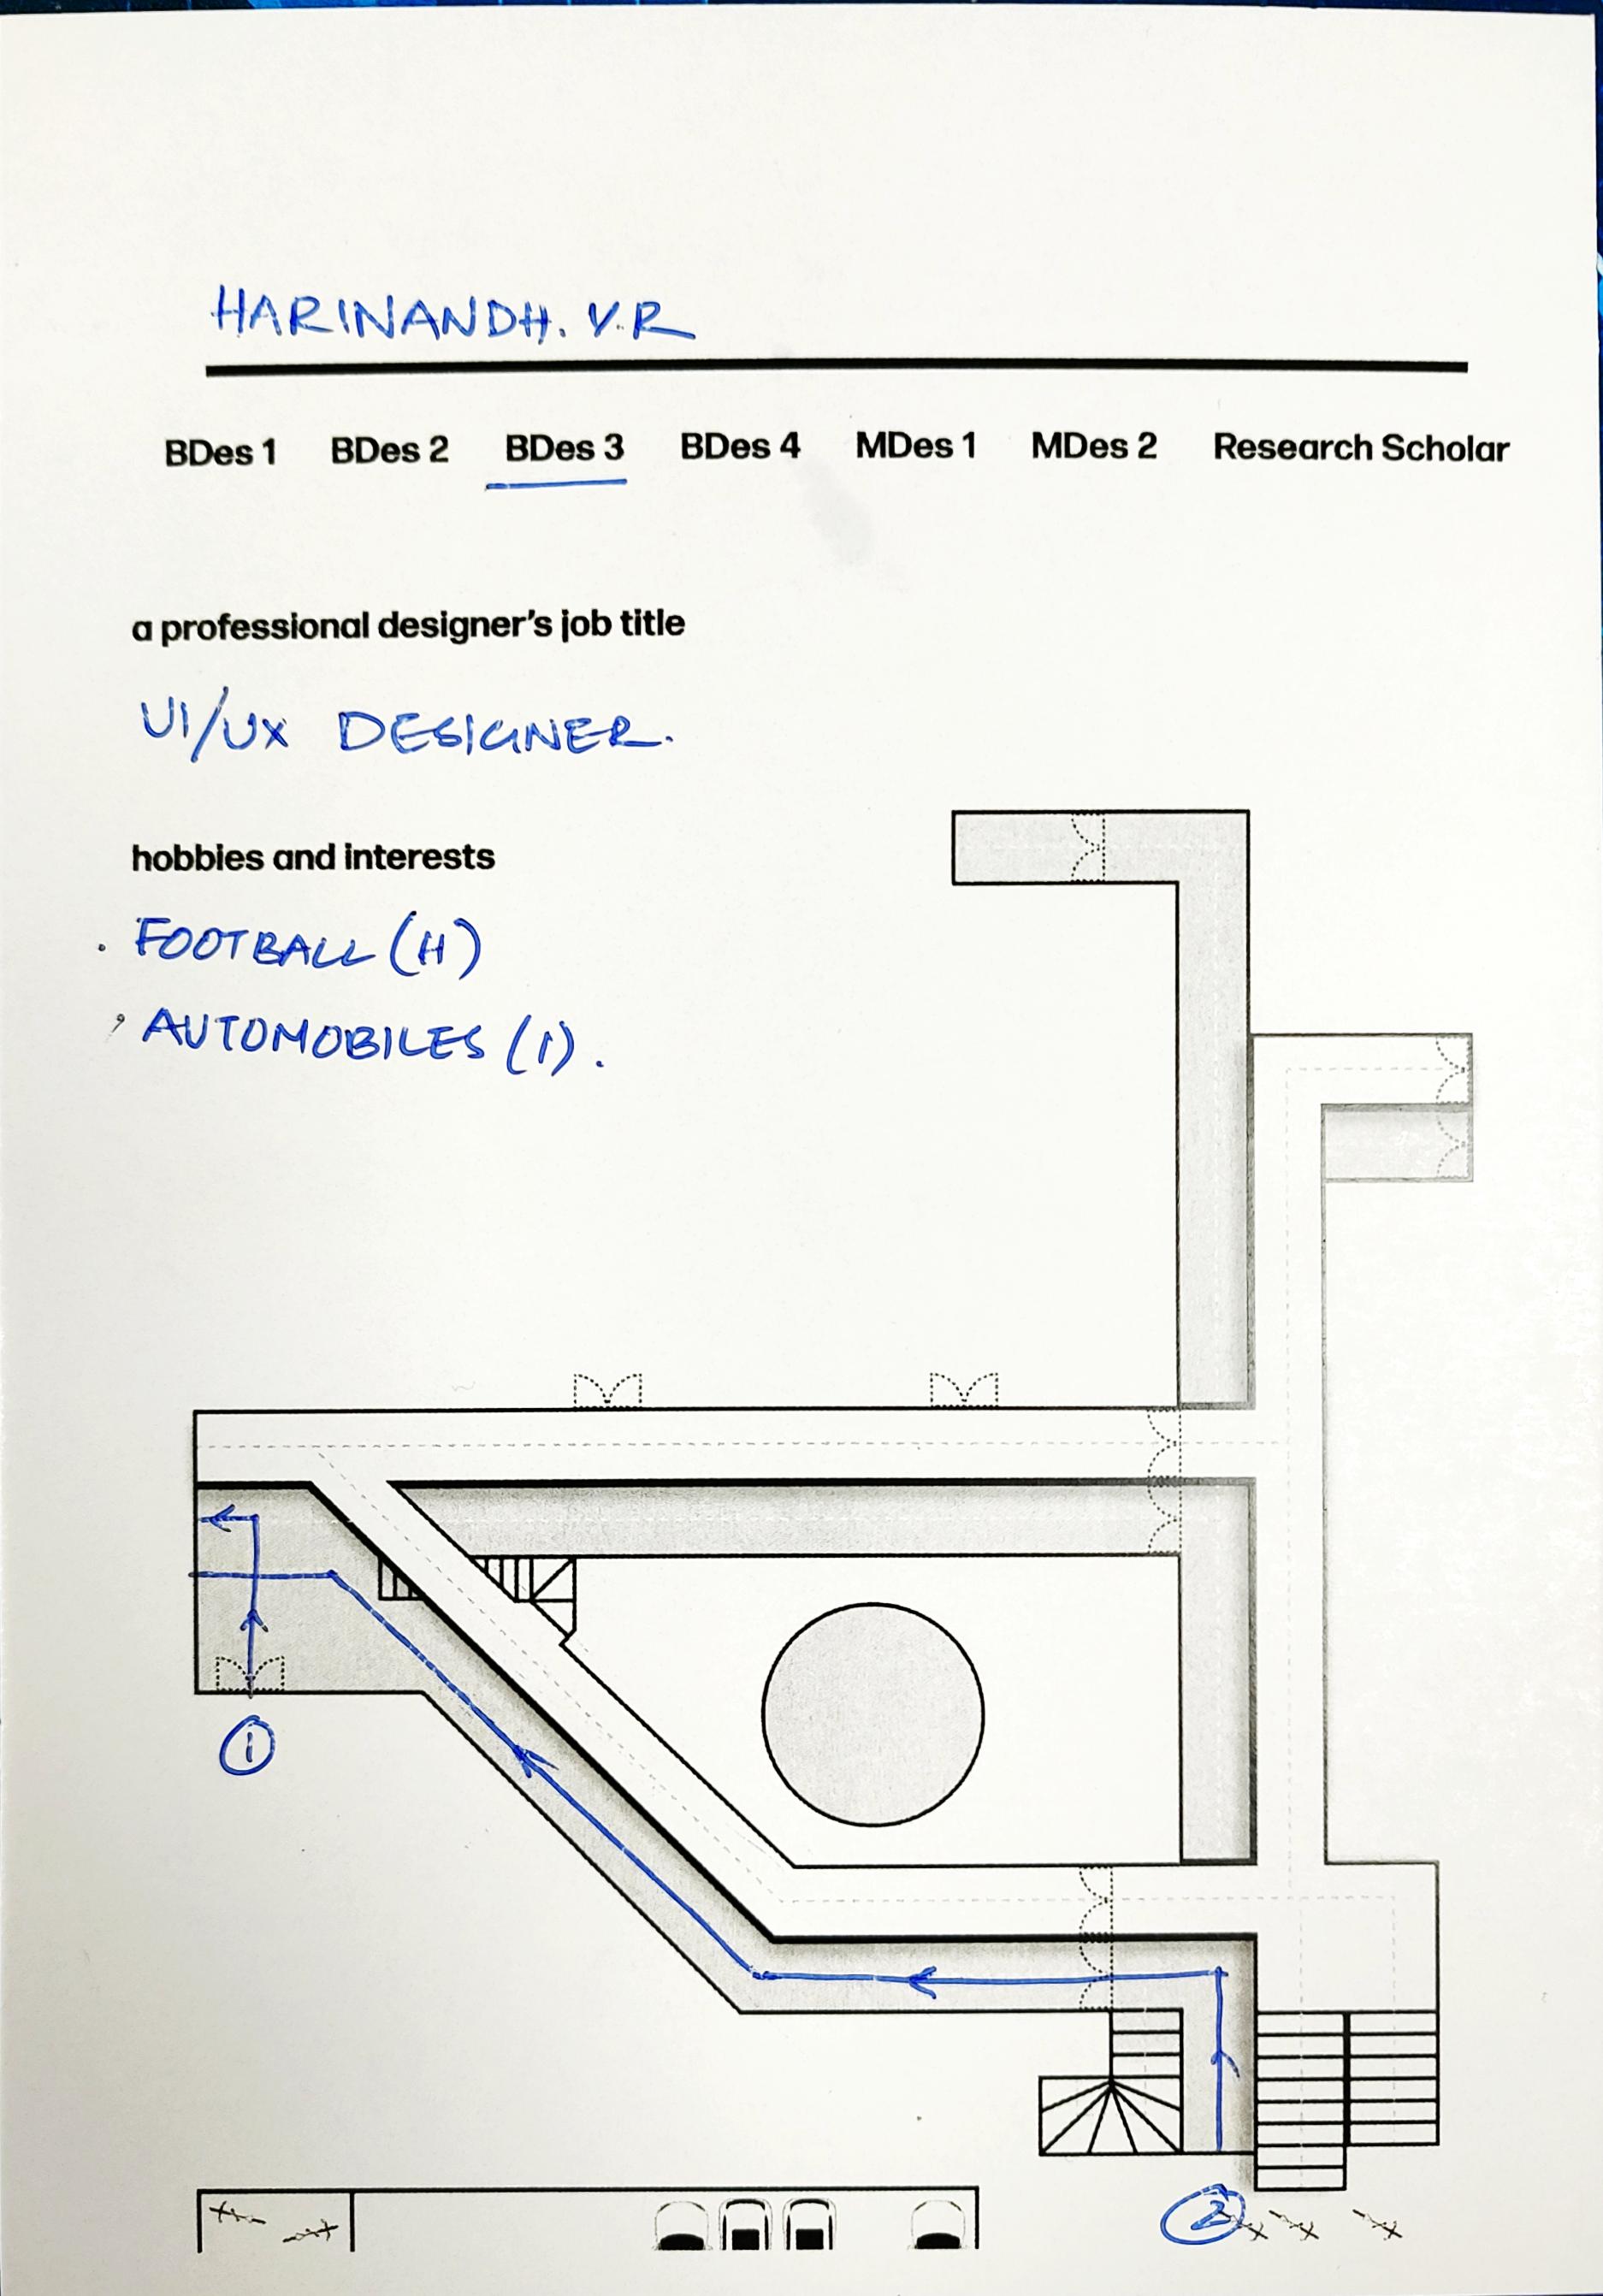 HARINANDH. V.R
BDes 1 BDes 2 BDes 3 BDes 4 MDes 1 MDes 2 Research Scholar
a professional designer's job title
UI/UX DESIGNER.
hobbies and interests
. FOOTBALL (H)
, AUTOMOBILES (I).
1
2